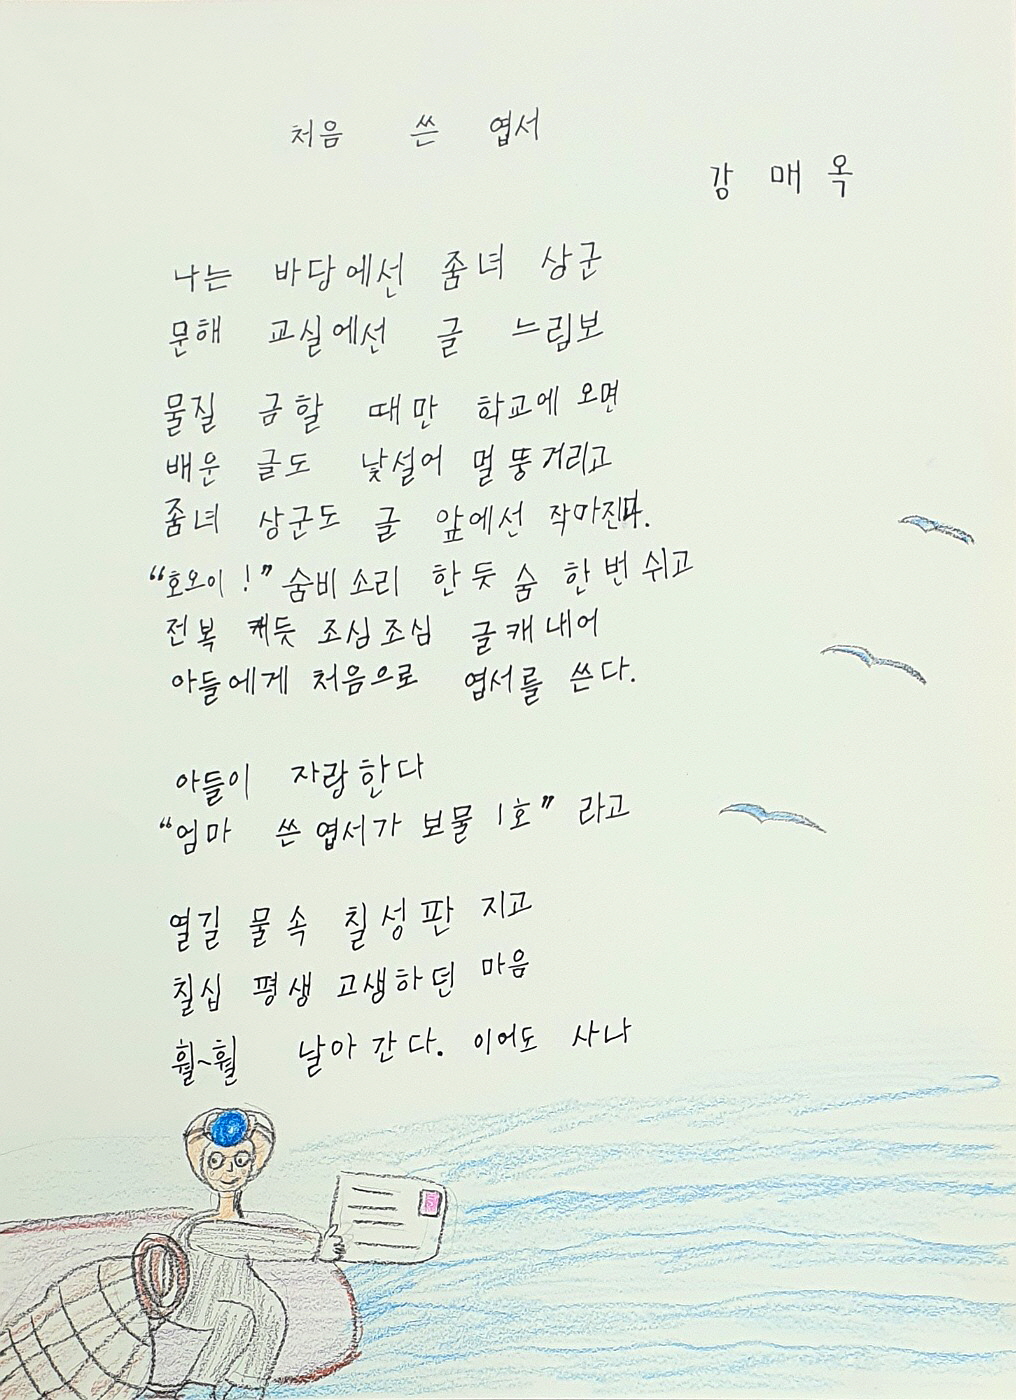 처음 쓴 엽서
강매옥
나는 바당에선 좀녀 상군
문해 교실에선 글 느림보
물질 금할 때만 학교에 오면
배운 글도 낯설어 멀뚱거리고
좀녀 상군도 글 앞에선 작아진다.
“호오이!” 숨비소리 한 듯 숨 한 번 쉬고
전복 캐듯 조심조심 글 캐내어
아들에게 처음으로 엽서를 쓴다.
아들이 자랑한다
“엄마 쓴 엽서가 보물 1호” 라고
열길 물 속 칠성판 지고
칠십 평생 고생하던 마음
훨~훨 날아간다. 이어도 사나